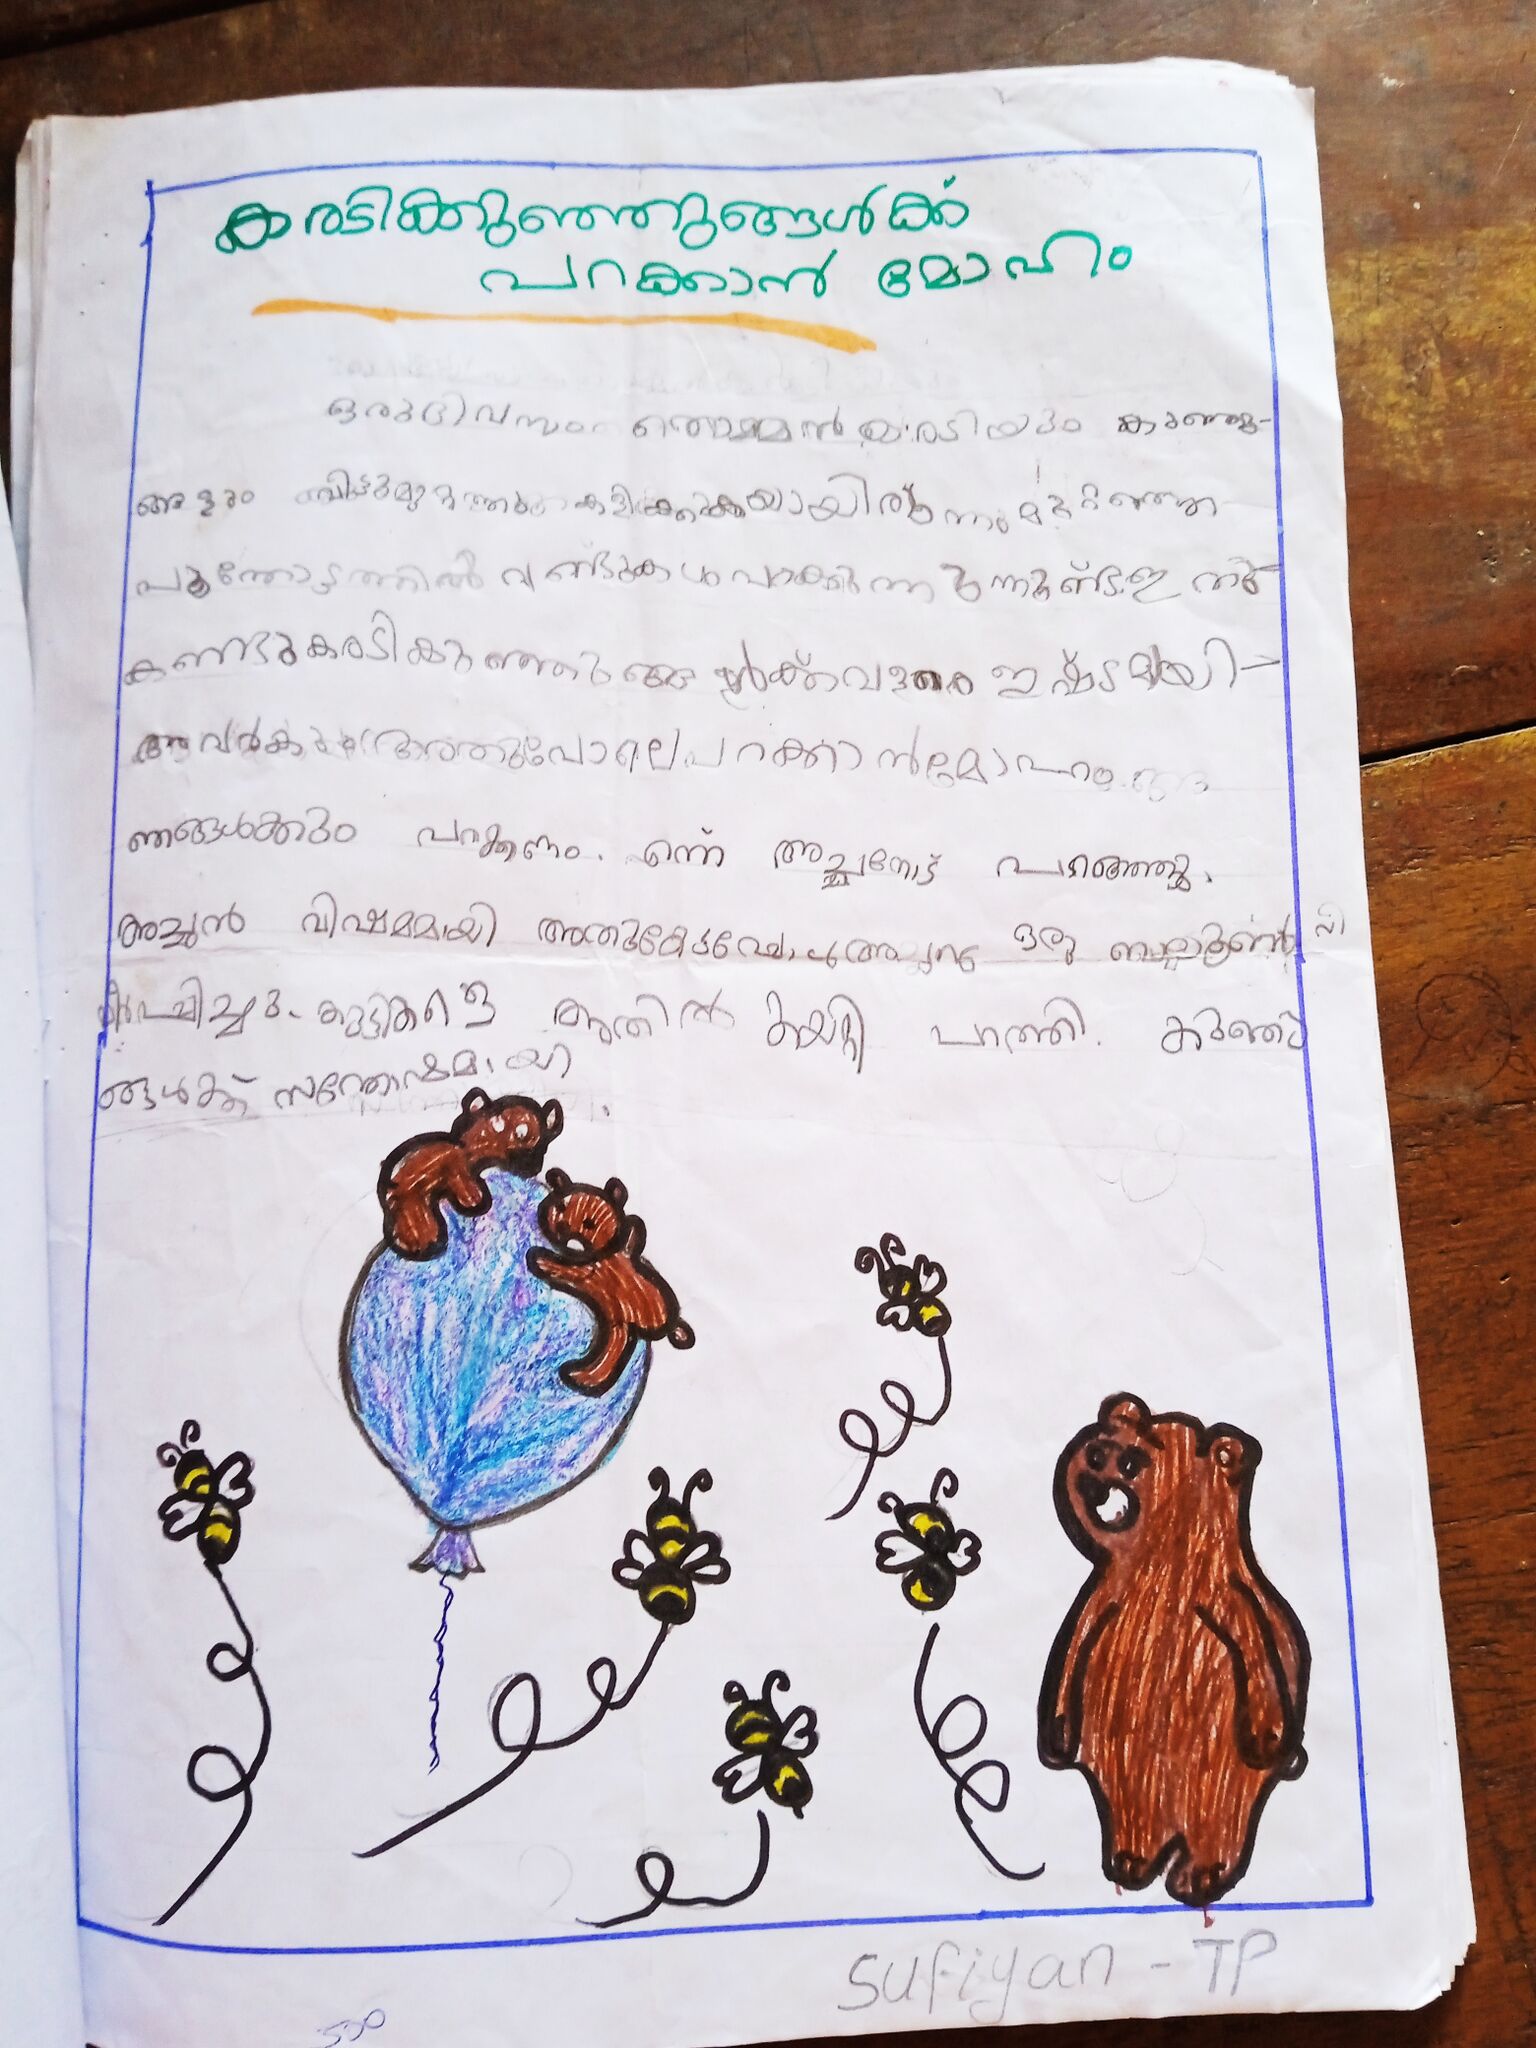 കരടിക്കുഞ്ഞുങ്ങൾക്ക്
പറക്കാൻ മോഹം
ഒരുദിവസം തൊമ്മൻ കരടിയും കുഞ്ഞു-
ങ്ങളും വീട്ടുമുറ്റത്തു കളിക്കുകയായിരുന്നു
പൂന്തോട്ടത്തിൽ വണ്ടുകൾ പറക്കുന്നുന്നുണ്ട്. ഇത്
കണ്ടു കരടിക്കുഞ്ഞുങ്ങൾക്ക് വളരെ ഇഷ്ടമായി-
അവർക്കും അതുപോലെ പറക്കാൻ മോഹം
ഞങ്ങൾക്കും പറക്കണം. എന്ന് അച്ഛനോട് പറഞ്ഞു.
അച്ഛൻ വിഷമമായി ഒരു ബലൂൺ വീ
ർപ്പിച്ചു. കുട്ടികളെ അതിൽ കയറ്റി പറത്തി. കുഞ്ഞു
ങ്ങൾക്ക് സന്തോഷമായി.
Sufiyan - TP
530